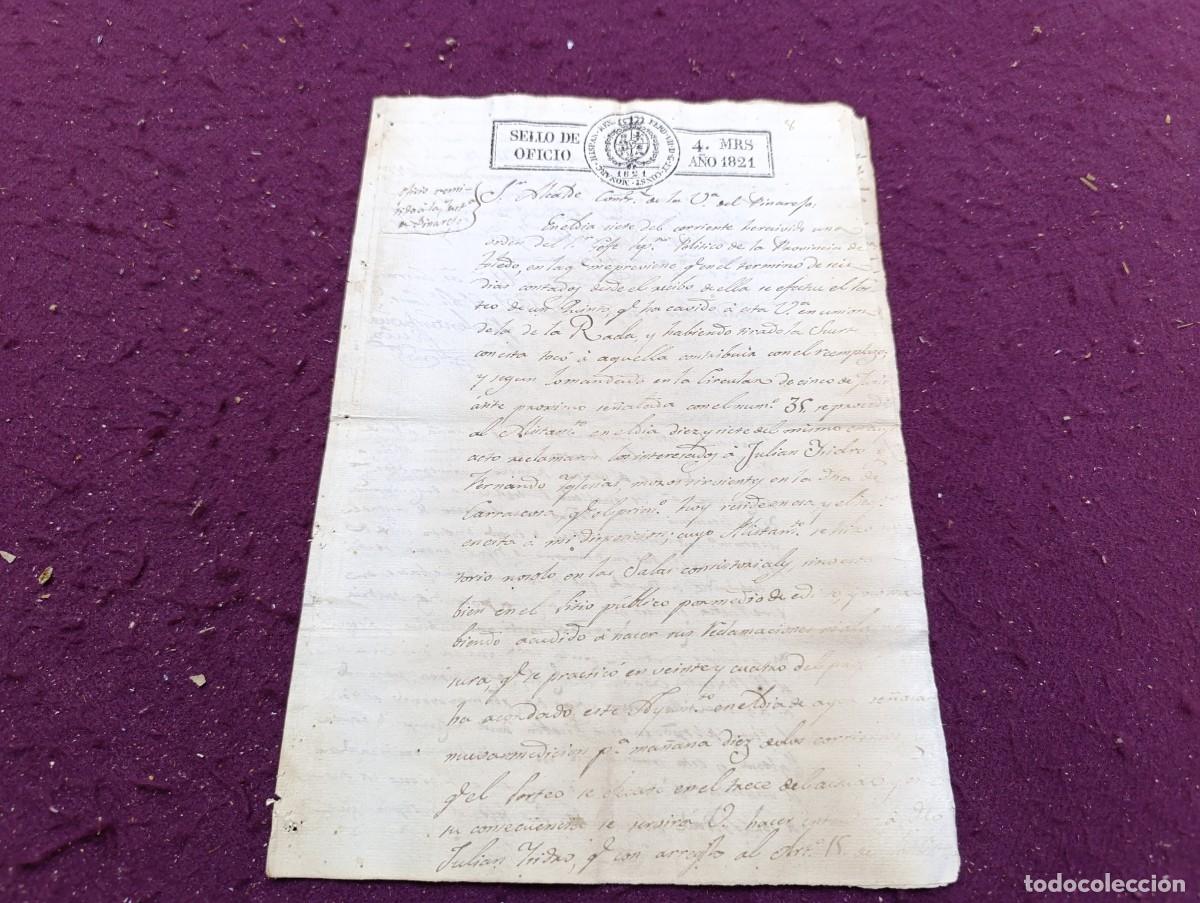 8
SELLO DE OFICIO
HISPAN. REX. FERD. VII. D. G. ET CONST. MONARC.
1821
4. MRS
AÑO 1821
oficio remi-
tido à la Just.ª
Pinarejo
S.r Alcalde Cont.l de la V.ª del Pinarejo,
En el dia siete del corriente he recivido una
orden del S.r Gefe Político de la Provincia de
toledo, en la q.e me previene q.e en el termino de seis
dias contados desde el recibo de ella se efectue el sor
teo de un Quinto, q.e ha cavido à esta V.ª en union
de la de la Rada, y habiendo tirado la Suerte
con esta tocó à aquella contribuir con el reemplazo,
y segun lo mandado en la Circular de cinco de
ante proximo señalada con el num.o 35, se procedió
al Alistam.to en el dia diez y siete del mismo en cuyo
acto reclamaron los interesados à Julian Isidro y
Fernando Yglesias mozos sirvientes en la
Carrascosa, q.e el prim.o tuvo residencia y el
en esta à mi disposicion; cuyo Alistam.to se hizo
torio no solo en las Salas consistoriales, sino
bien en el Sitio público por medio de
biendo acudido à hacer sus reclamaciones
sura, q.e se practicó en veinte y cuatro del
ha acordado este Ayunt.to en el dia de ayer señalar
nueva medicion p.ª mañana diez de los corrientes
q.e el Sorteo se efectue en el trece del actual,
su consecuencia se servirá V. hacer
Julian Isidro, q.e con arreglo al Art.o 15
todocolección